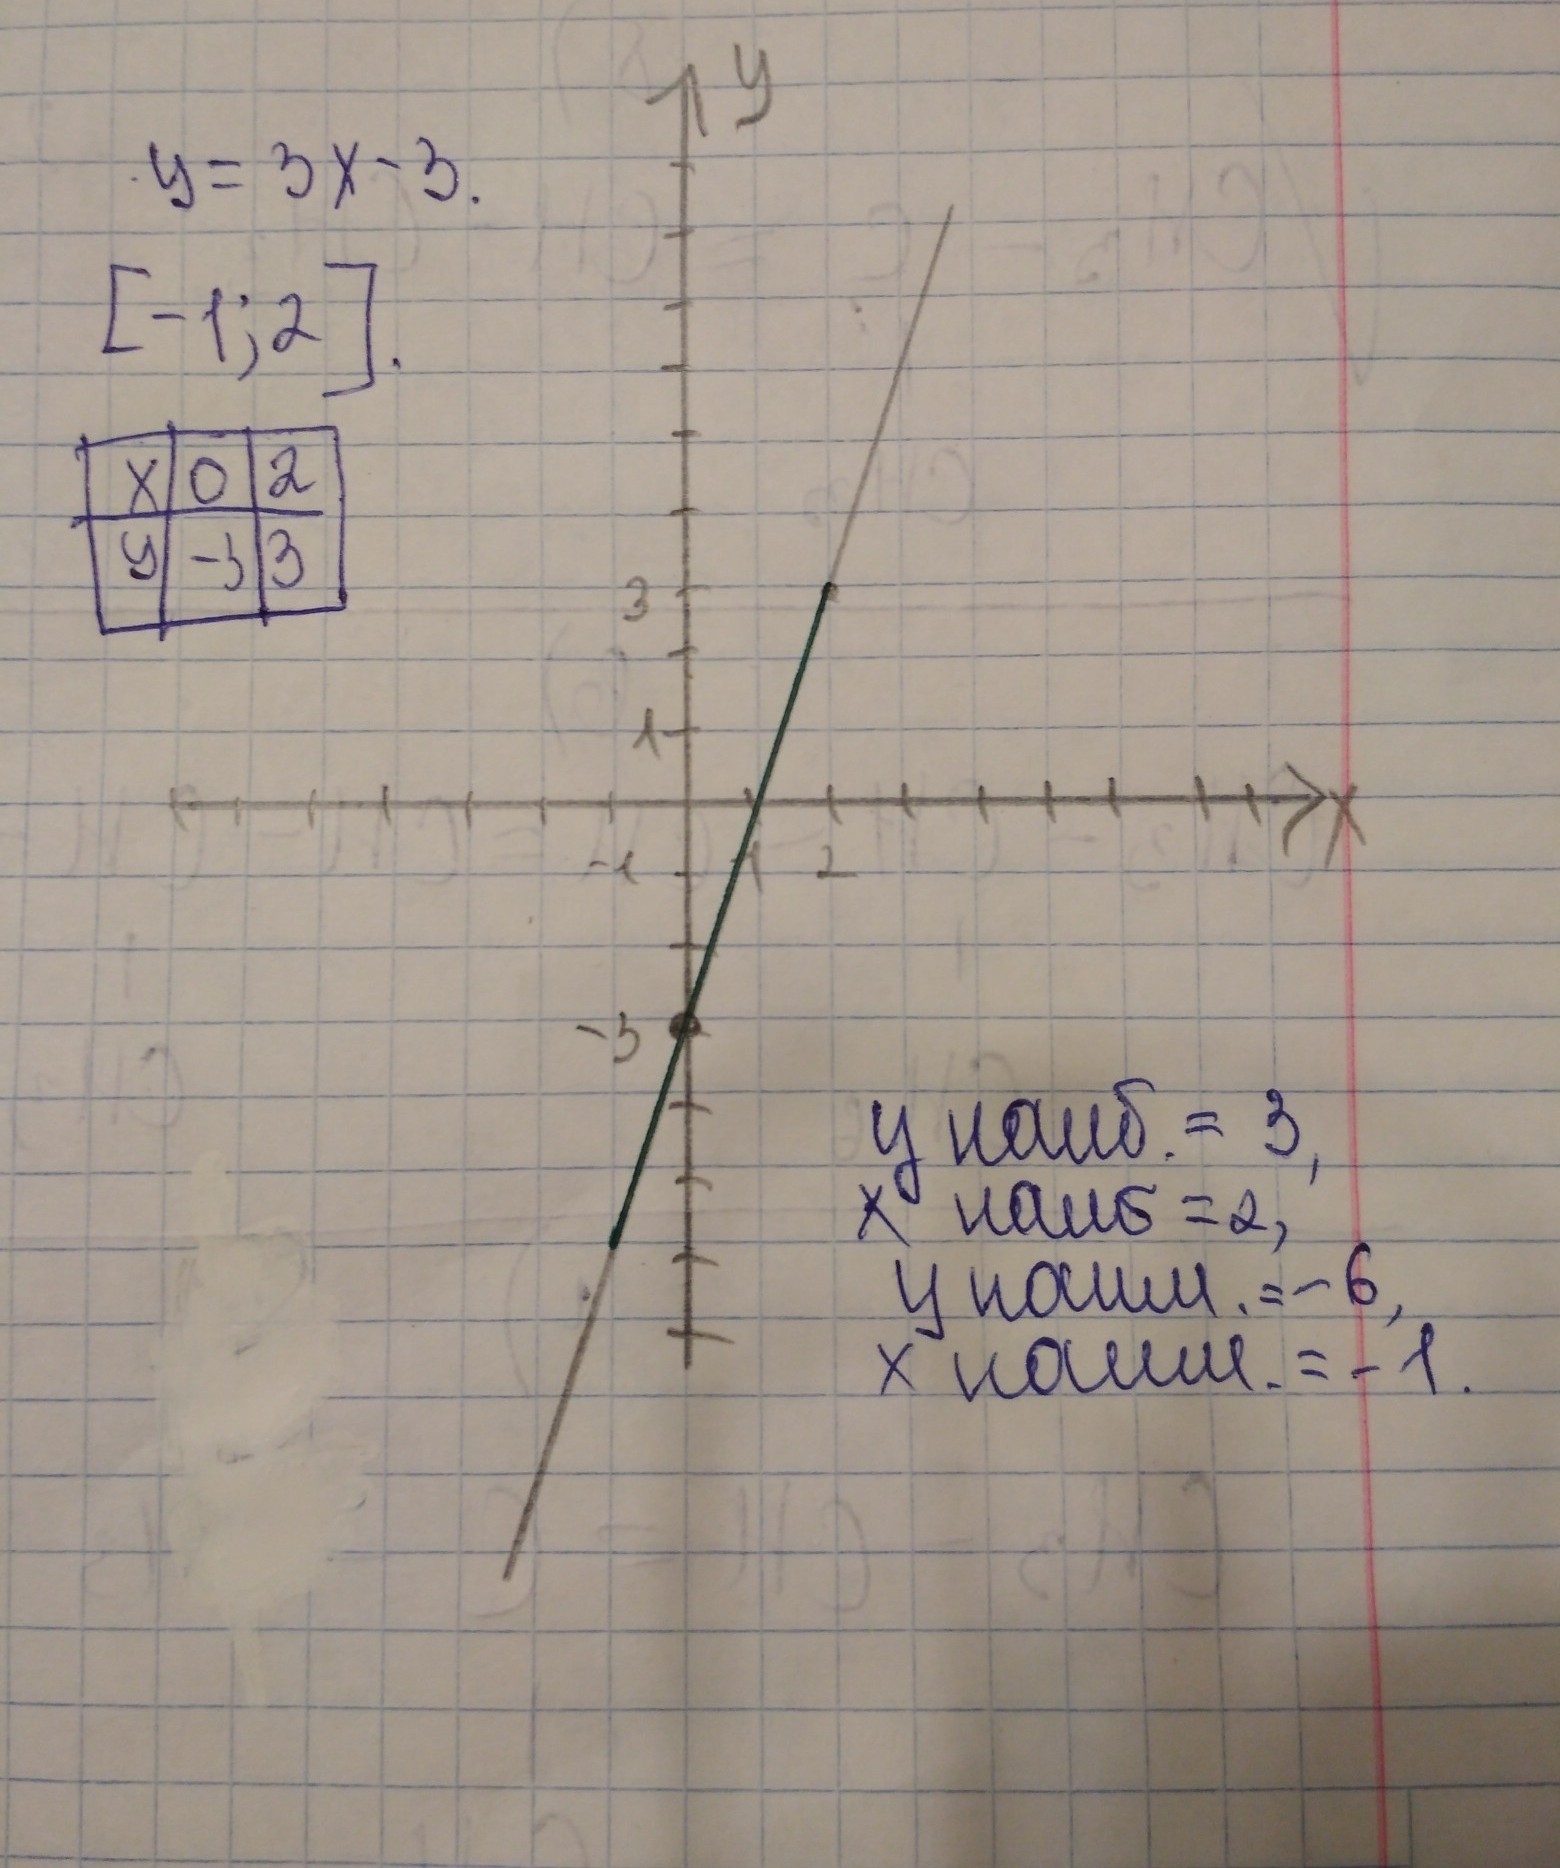 y = 3x - 3.
[-1; 2].
x 0 2
y -3 3
y
3
1
x
-1 1 2
-3
y наиб. = 3,
x наиб = 2,
y наим. = -6,
x наим. = -1.